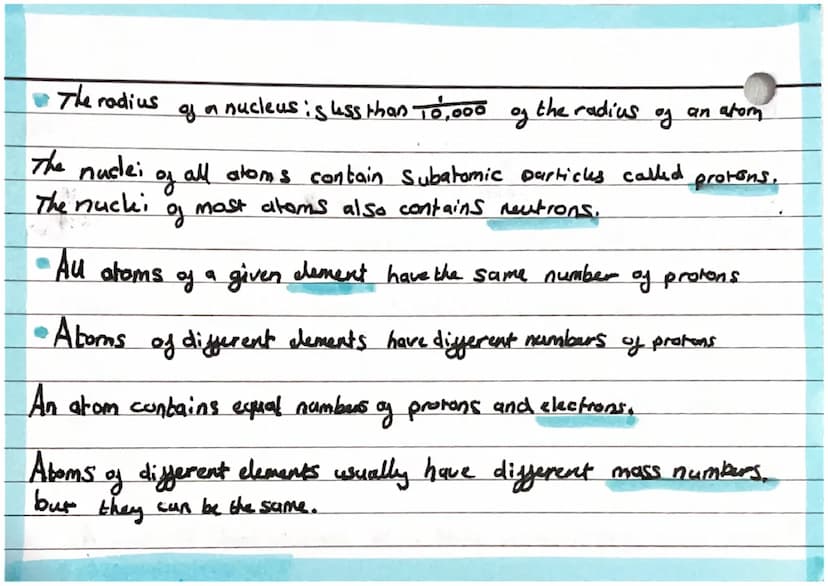 • The radius of a nucleus is less than 1/10,000 of the radius of an atom
The nuclei of all atoms contain subatomic particles called protons.
The nuclei of most atoms also contains neutrons.
• All atoms of a given element have the same number of protons
• Atoms of different elements have different numbers of protons
An atom contains equal numbers of protons and electrons.
Atoms of different elements usually have different mass numbers,
but they can be the same.